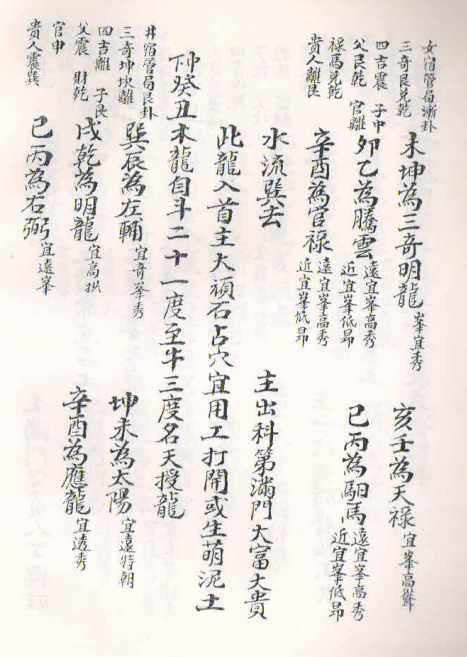 女宿管局漸卦
三奇艮兌乾
四吉震 子中
父艮乾 官離
祿馬兌乾
貴人離艮
未坤為三奇明龍 峯宜秀
亥壬為天祿 宜峯高聳
卯乙為騰雲 遠宜峯高秀 近宜峯低昂
巳丙為駟馬 遠宜峯高秀 近宜峯低昂
辛酉為官祿 遠宜峯高秀 近宜峯低昂
水流巽去
主出科第滿門大富大貴
此龍入首主大頑石占穴宜用工打開或生萌泥土
下帅癸丑木龍自斗二十一度至牛三度名天授龍
井宿管局艮卦
三奇坤坎離
四吉離 子艮
父震 財乾
官申
貴人震巽
巽辰為左輔 宜奇峯秀
坤未為太陽 宜遠特朝
戌乾為明龍 宜高拱
辛酉為應龍 宜透秀
巳丙為右弼 宜遠峯